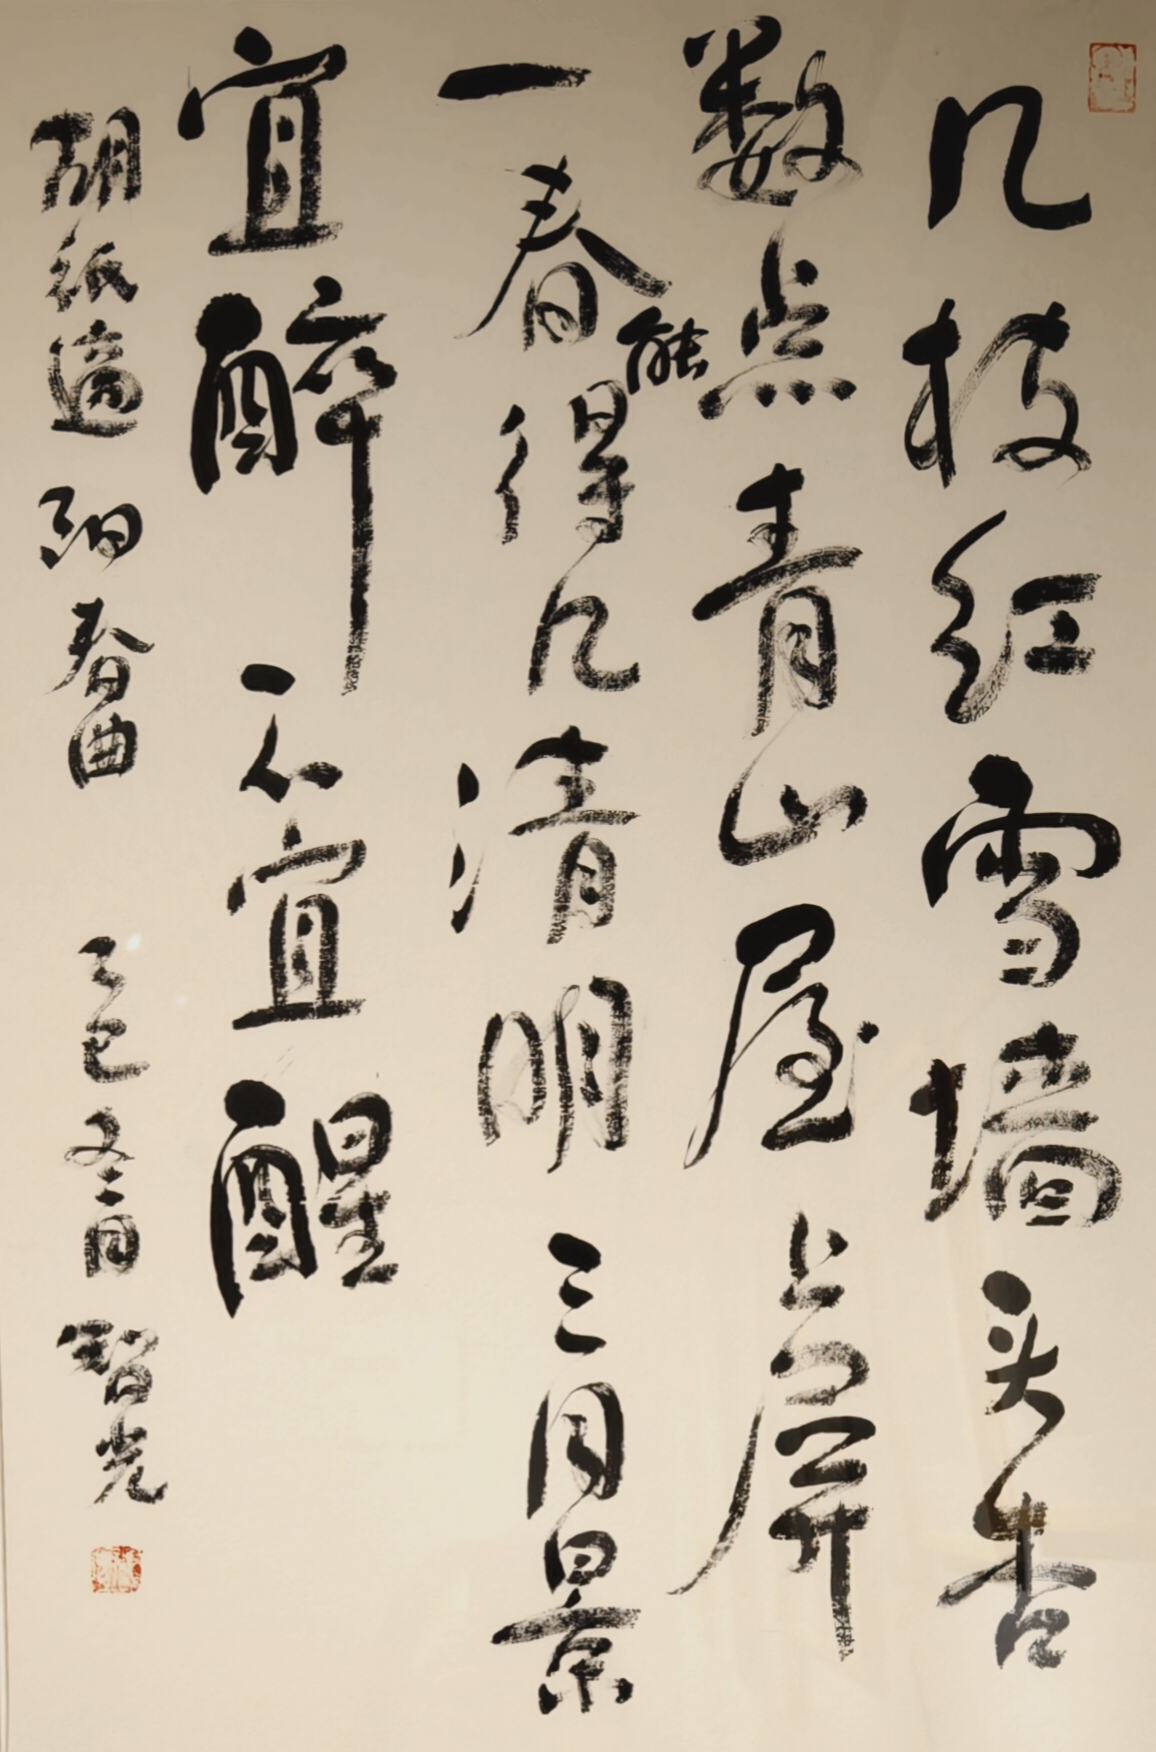 几枝红雪墙头杏
数点青山屋上屏
一春能得几清明三月景
宜醉不宜醒
胡祗遹 阳春曲 乙巳冬二月 智光